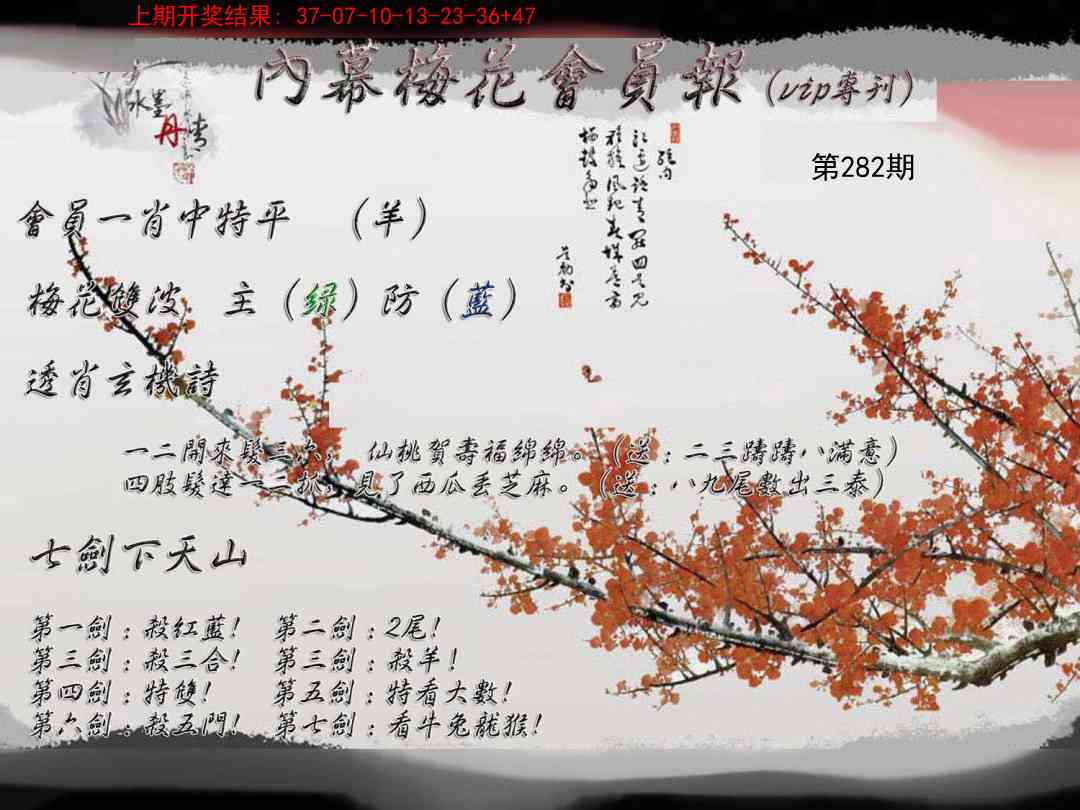 上期开奖结果: 37-07-10-13-23-36+47
內幕梅花會員報(vip專刊)
水墨
丹情
第282期
會員一肖中特平 (羊)
梅花雙波 主(绿)防(藍)
透肖玄機詩
一二開來髮三六, 仙桃賀壽福綿綿。(送:二三躊躊八滿意)
四肢髮達一三抓,見了西瓜丢芝麻。(送:八九尾數出三泰)
七劍下天山
第一劍:殺红藍! 第二劍:2尾!
第三劍:殺三合! 第三劍:殺羊!
第四劍:特雙! 第五劍:特看大數!
第六劍:殺五門! 第七劍:看牛兔龍猴!